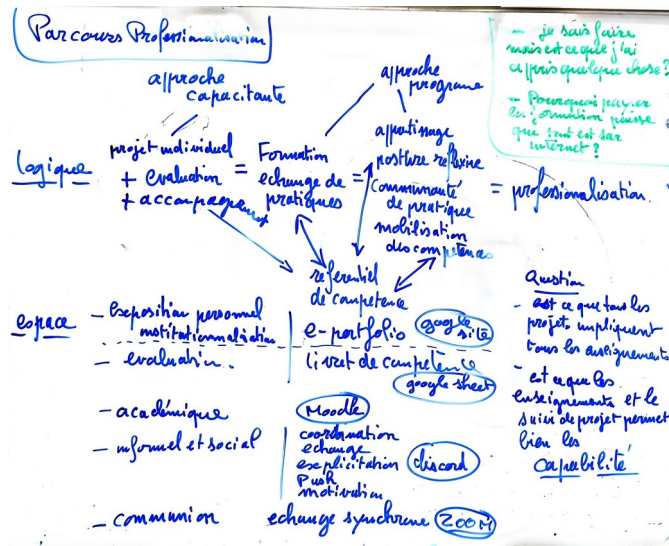 Parcours Professionalisation
approche
capacitante
approche
programe
- je sais faire
mais est ce que j'ai
appris quelque chose?
- Pourquoi payer
la formation puisse
que tout est sur
internet?
logique
projet individuel
+ evaluation
+ accompagnement
=
Formation
echange de
pratiques
=
appatissage
posture reflexive
communauté
de pratique
mobilisation
des competences
= professionalisation
referentiel
de competence
espace
- exposition personnel
institutionnalisation
e-portfolio
google
site
- evaluation.
livret de competence
google sheet
- académique
Moodle
- informel et social
coordination
echange
explicitation
Push
motivation
discord
- communion
echange synchrone
ZOOM
Question
- est ce que tous les
projets impliquent
tous les enseignements
- est ce que les
enseignements et le
suivi de projet permet
bien les
capabilité